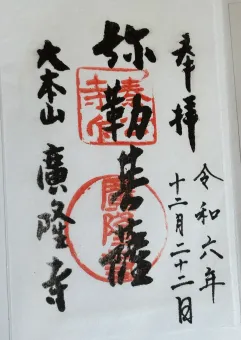 奉拝
令和六年
十二月二十二日
弥勒菩薩
大本山
廣隆寺